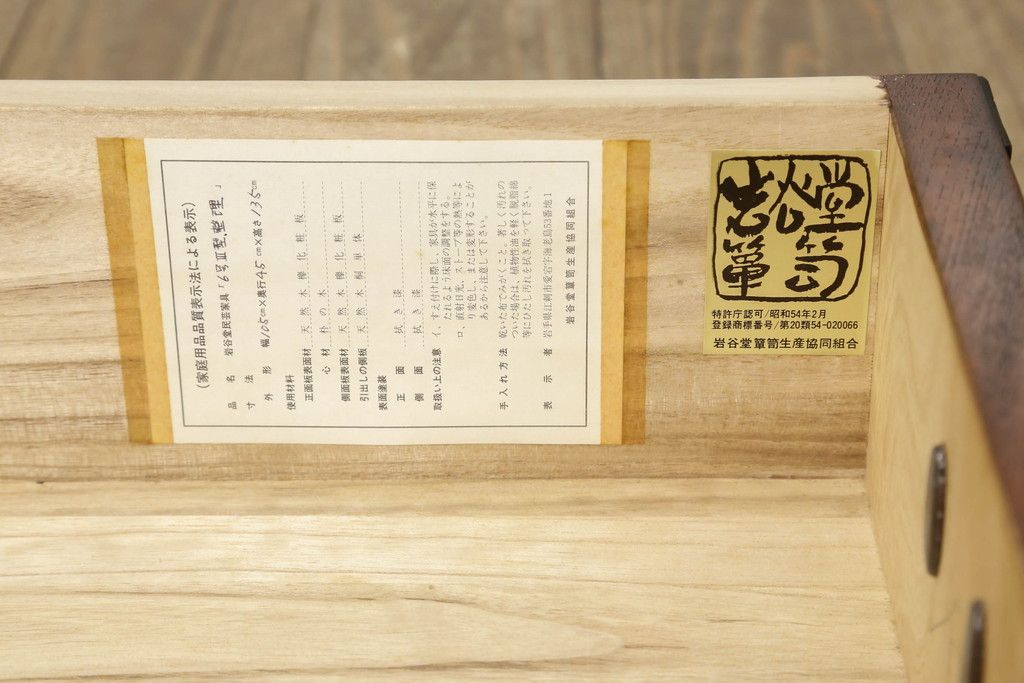 (家庭用品品質表示法による表示)
品名 岩谷堂民芸家具「6号Ⅲ型整理」
寸法 外形 幅105cm×奥行45cm×高さ135cm
使用材料
正面板表面材 天然木欅化粧板
心材 朴の木
側面板表面材 天然木欅化粧板
引出しの側板 天然木桐単体
表面塗装
正面 拭き漆
側面 拭き漆
取扱い上の注意 イ、すえ付けに際し、家具が水平に保
たれるよう床面の調整をする。
ロ、直射日光、ストーブ等の熱等によ
り変色し、または変形することが
あるから注意して下さい。
手入れ方法 乾いた布でみがくこと。著しく汚れの
ついた場合は、植物性油を軽く脱脂綿
等にひたし汚れを拭き取って下さい。
表示者 岩手県江刺市愛宕字海老島53番地1
岩谷堂簞笥生産協同組合
岩谷堂
簞笥
特許庁認可/昭和54年2月
登録商標番号/第20類54-020066
岩谷堂簞笥生産協同組合